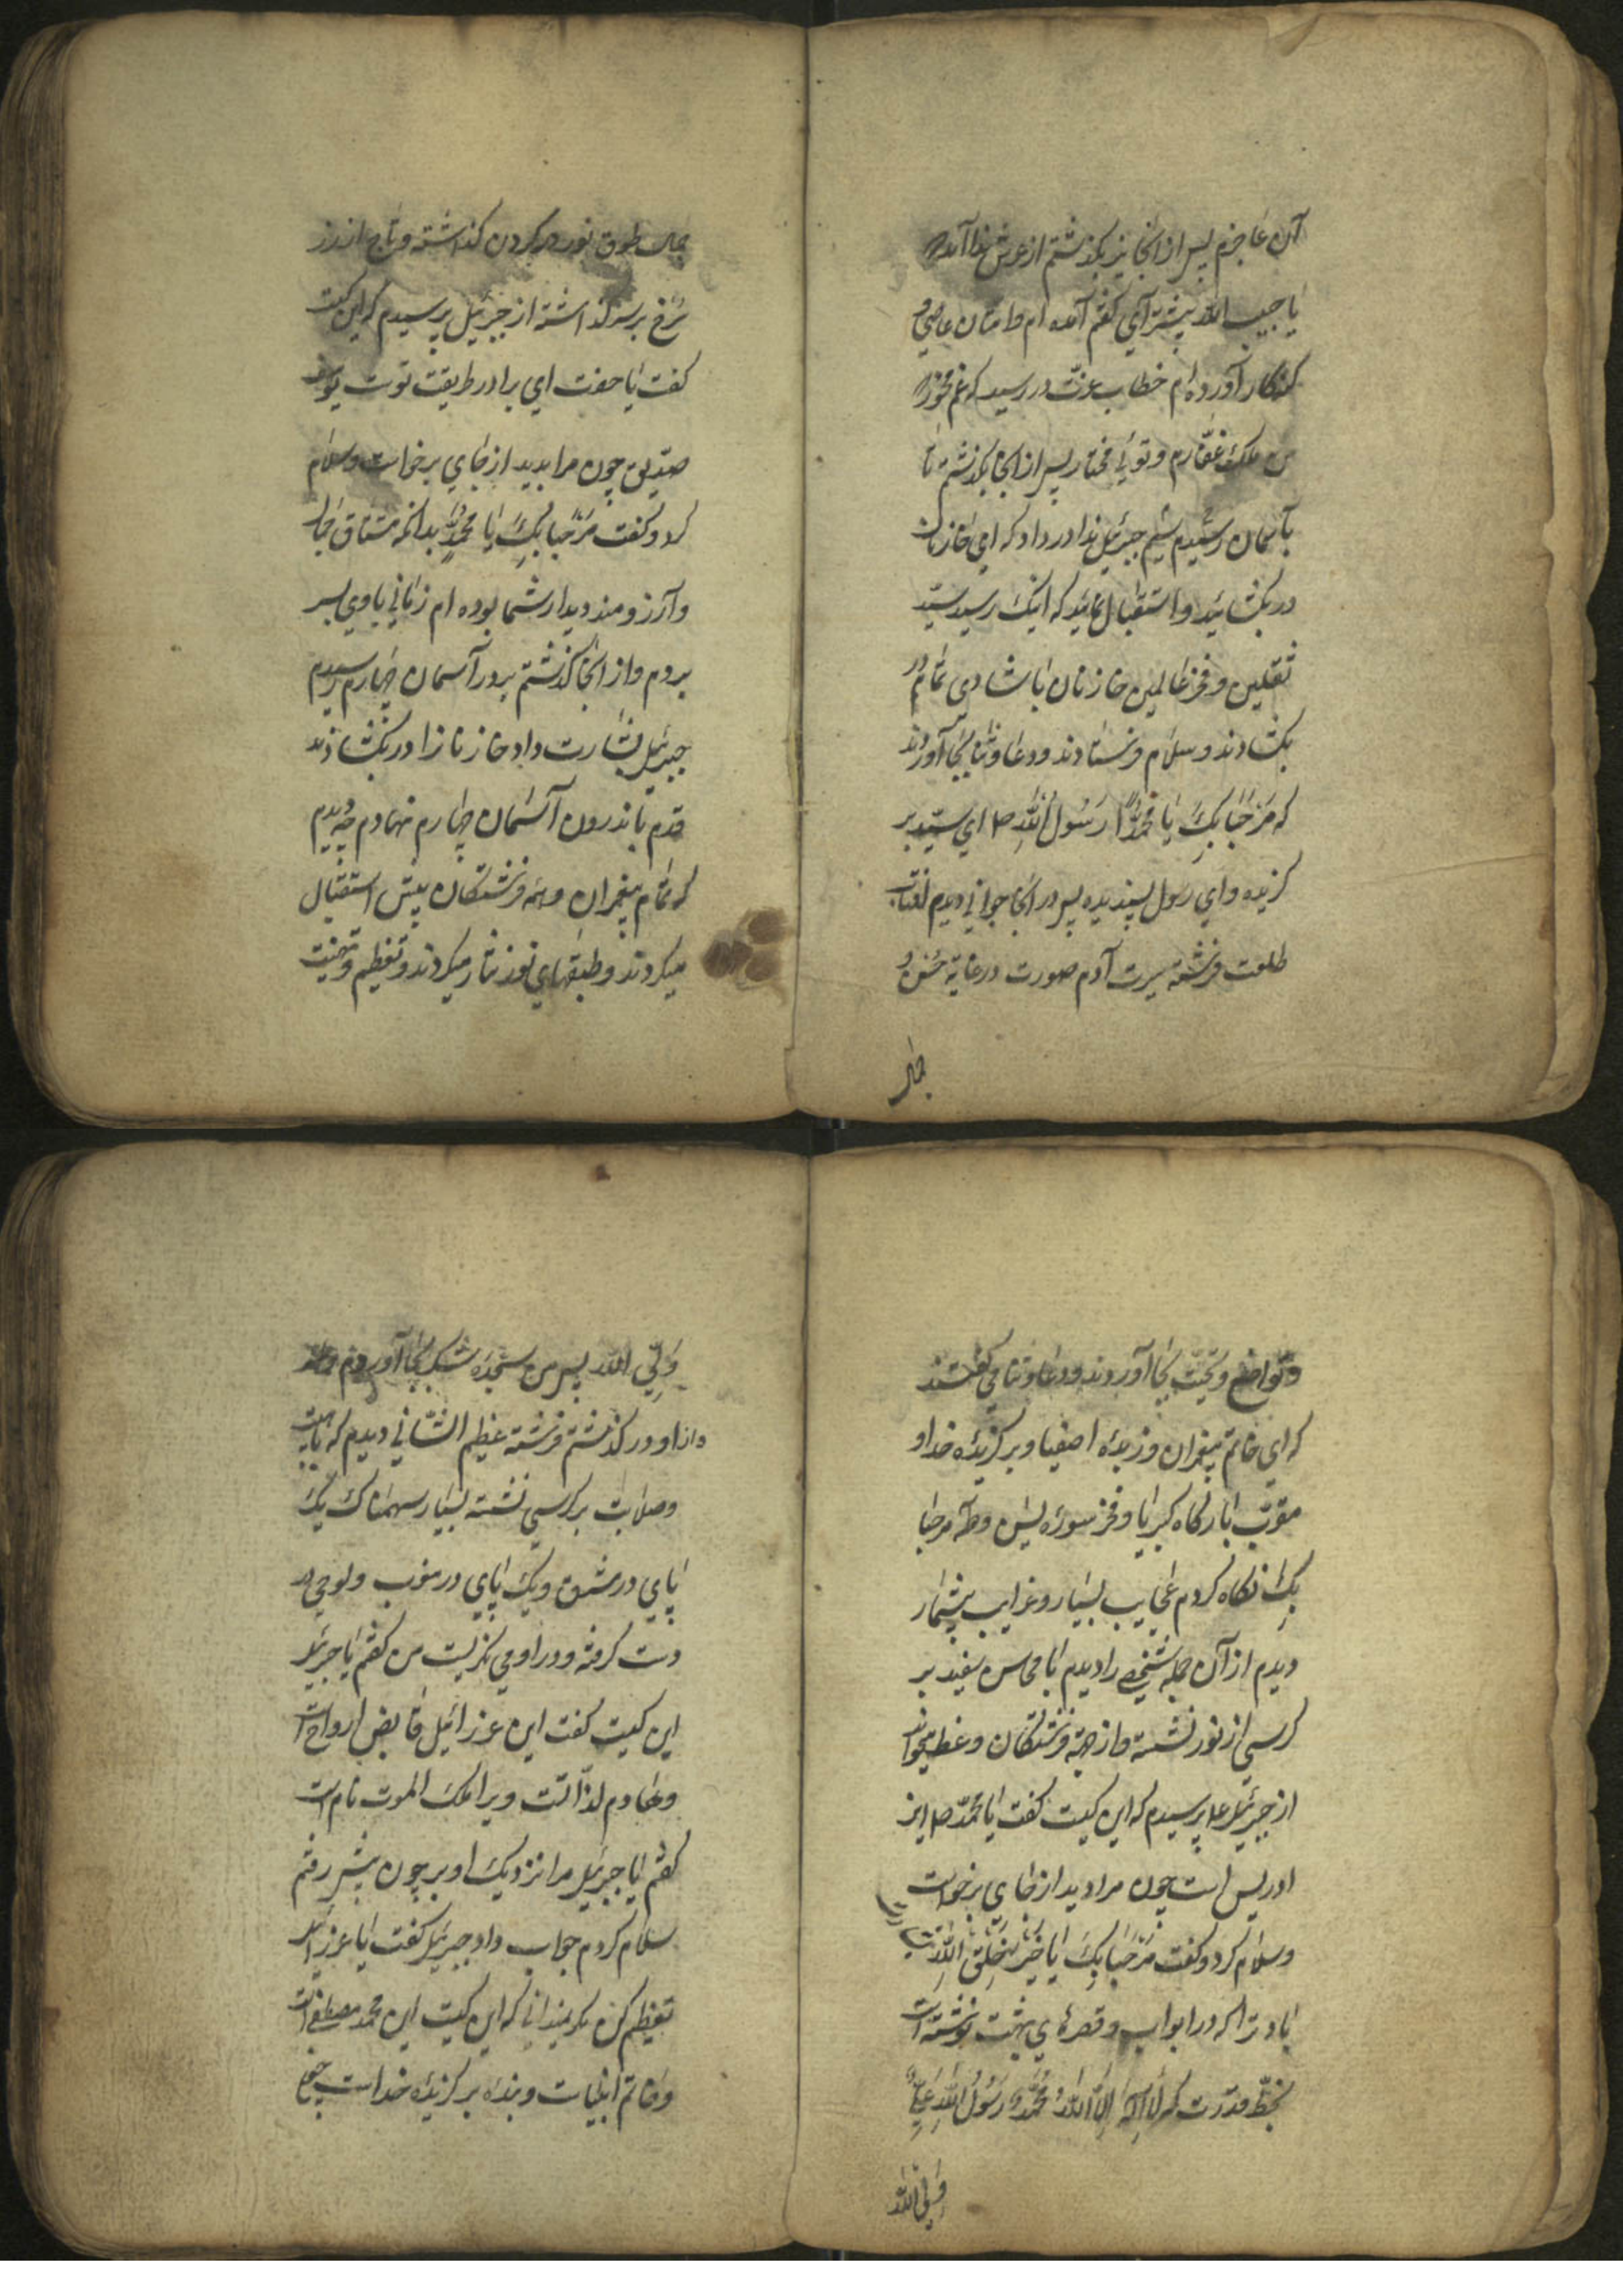 آن عاجزم پس از آنجا نیز بگذشتم از عرش ندا آمد که
یا حبیب الله پیشتر آی گفتم آمده ام و امتان عاصی و
گنهکار آورده ام خطاب عزت در رسید که غم مخور که
من ملک غفارم و توئی مختار پس از آنجا بگذشتم تا
بآسمان سیم رسیدم جبرئیل ندا در داد که ای خازنان
در بگشائید و استقبال نمائید که اینک رسید سید
ثقلین و فخر عالمین خازنان با شادی تمام در
بگشادند و سلام فرستادند و دعا و ثنا بجا آوردند
که مَرحَبا بِکَ یا مُحَمَّداً رَسُولُ اللّهِ ص ای سید بر
گزیده و ای رسول پسندیده پس در آنجا جوانی دیدم آفتاب
طلعت فرشته سیرت آدم صورت در غایة حسن و
جمال
جمال طوق نور در گردن گذاشته و تاج از زر
سرخ بر سر گذاشته از جبرئیل پرسیدم که این کیست
گفت یا حضرت ای برادر طریقت توست یوسف
صدیق چون مرا بدید از جای برخواست و سلام
کرد و گفت مَرحَبا بِکَ یا مُحَمَّدٌ بدانکه مشتاق جمال
و آرزومند دیدار شما بوده ام زمانی با وی بسر
بردم و از آنجا گذشتم بدور آسمان چهارم رسیدم
جبرئیل بشارت داد خازنانرا در بگشادند
قدم باندرون آسمان چهارم نهادم چه دیدم
که تمام پیغمبران و همه فرشتگان پیش استقبال
میکردند و طبقهای نور نثار میکردند و تعظیم و تهنیت
و تواضع و تحیّت بجا آوردند و دعا و ثنا می گفتند
که ای خاتم پیغمبران و زبدۀ اصفیا و برگزیدۀ خدا و
مقرّب بارگاه کبریا و فخر سورۀ یس و طه مرحبا
بِکَ نگاه کردم عجایب بسیار و غرایب بیشمار
دیدم از آن جمله شخصی را دیدم با محاسن سفید بر
کرسی از نور نشسته و از جهة فرشتگان وعظ میخواند
از جبرئیل ع پرسیدم که این کیست گفت یا محمّد ص این
ادریس است چون مرا دید از جای برخواست
و سلام کرد و گفت مَرحَبا بِکَ یا خَیرَ خَلقِ اللّهِ بشارت
باد ترا که در ابواب و قصرهای بهشت نوشته است
بخطّ قدرت که لا اِلهَ اِلاّ اللّهُ مُحَمَّدٌ رَسُولُ اللّهِ عَلِیٌّ
وَلِیُّ اللّه
وَلِیُّ اللّه پس من سجدۀ شکر بجا آوردم
و از او در گذشتم فرشته عظیم الشّانی دیدم که با هیبت
و صلابت بر کرسی نشسته بسیار سهمناک یک
پای در مشرق و یک پای در مغرب و لوحی در
دست گرفته و در او می نگریست من گفتم یا جبرئیل
این کیست گفت این عزرائیل قابض ارواح است
و هادم لذّاتست ویرا ملک الموت نام است
گفتم یا جبرئیل مرا نزدیک او بر چون پیش رفتم
سلام کردم جواب داد جبرئیل گفت یا عزرائیل
تعظیم کن مگر نمیدانی که این کیست این محمد مصطفی است
و خاتم انبیاست و بندۀ برگزیدۀ خداست چون